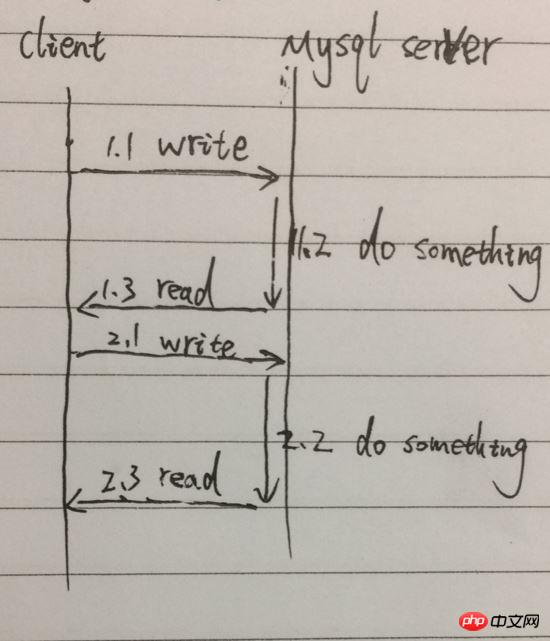 client Mysql server
1.1 write
1.2 do something
1.3 read
2.1 write
2.2 do something
2.3 read
php 中文网